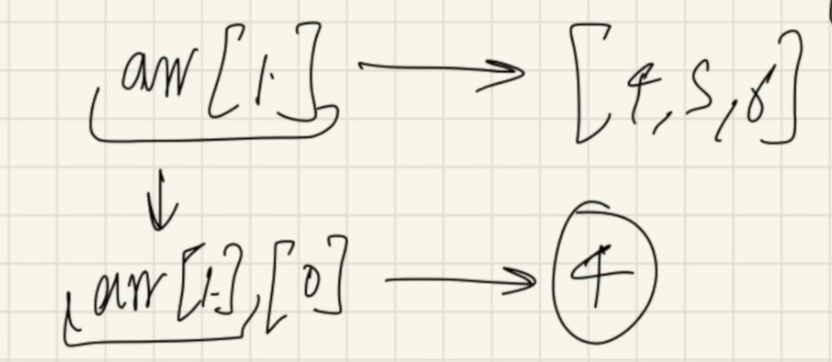 arr[1] → [4,5,6]
↓
arr[1],[0] → 4